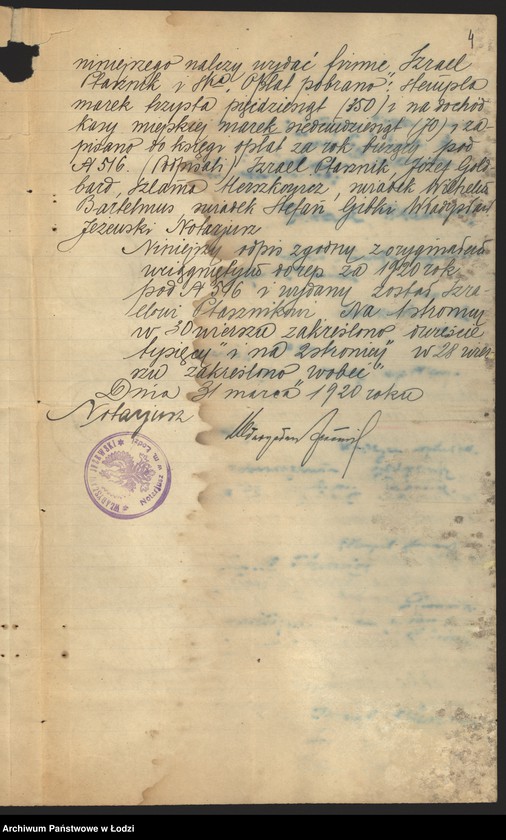 4
niniejszego należy wydać firmie Izrael
Ptasznik i S-ka". Opłat pobrano": stempla
marek trzysta pięćdziesiąt (350) i na dochód
kasy miejskiej marek siedemdziesiąt (70) i za-
pisano do księgi opłat za rok bieżący pod
№ 516. (Podpisali) Izrael Ptasznik, Józef Gold
bard, Szlama Herszkowicz, świadek Wilhelm
Bartelmus, świadek Stefan Gibki Władysław
Jeżewski Notarjusz
Niniejszy odpis zgodny z oryginałem
wciągniętym do rep za 1920 rok
pod № 516 i wydany został Izra-
elowi Ptasznikowi Na 1 stronicy
w 30 wierszu zakreślono dwieście
tysięcy" i na 2 stronicy w 28 wier-
szu zakreślono wobec"
Dnia 31 marca 1920 roku
Notarjusz
WŁADYSŁAW JEŻEWSKI
NOTARJUSZ w m. Łodzi
Archiwum Państwowe w Łodzi